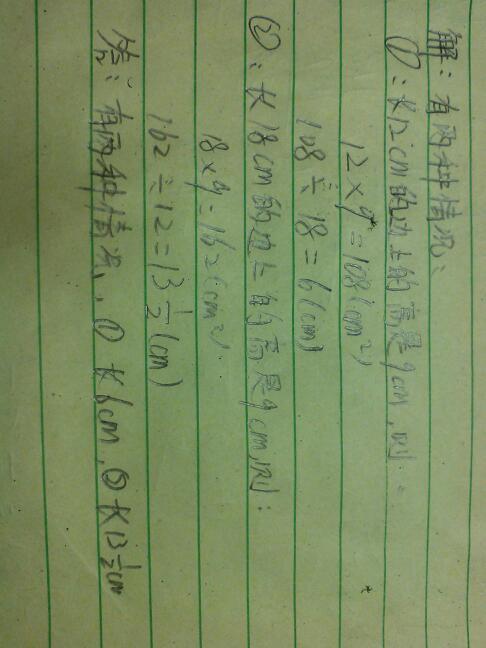 解：有两种情况：
①：长12cm的边上的高是9cm，则：
12×9=108(cm²)
108÷18=6(cm)
②：长18cm的边上的高是9cm，则：
18×9=162(cm²)
162÷12=13½(cm)
答：有两种情况，①长6cm，②长13½cm